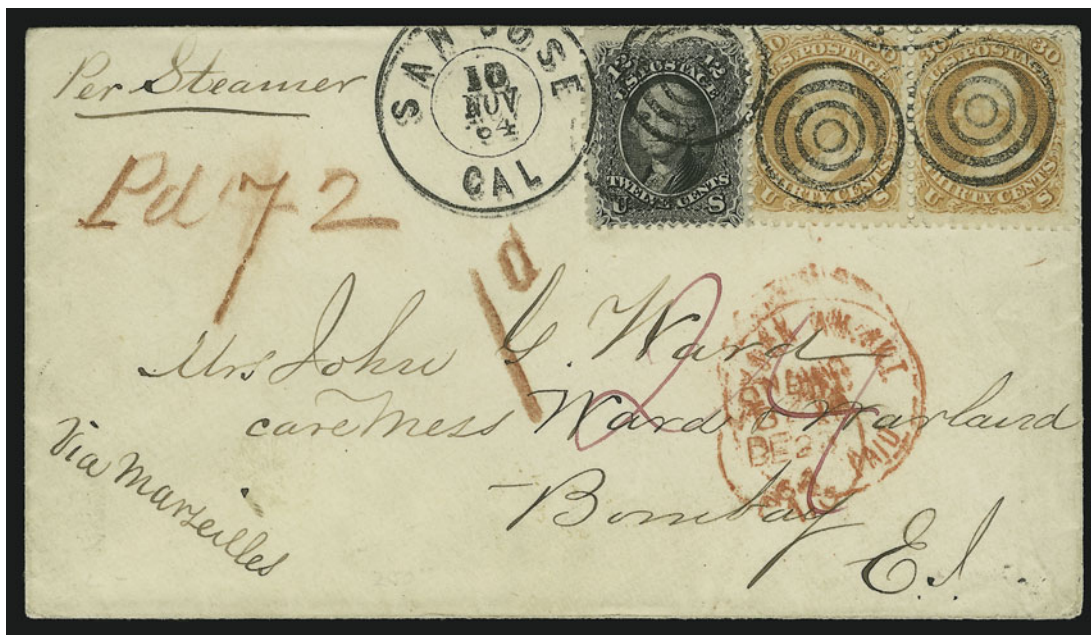 Per Steamer
SAN JOSE
10
NOV
64
CAL
12 12
U.S. POSTAGE
TWELVE CENTS
U S
30 30
U.S. POSTAGE
THIRTY CENTS
U S
30 30
U.S. POSTAGE
THIRTY CENTS
U S
Pd 72
1d
24
Mrs John G. Ward
care Mess Ward &
Bombay
E.I.
Via Marseilles
DE
PAID